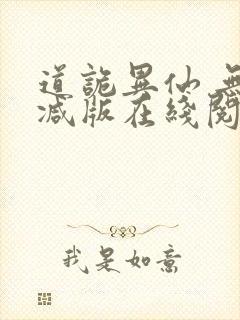 道詭異仙 無
減版在綫閱
我是如意